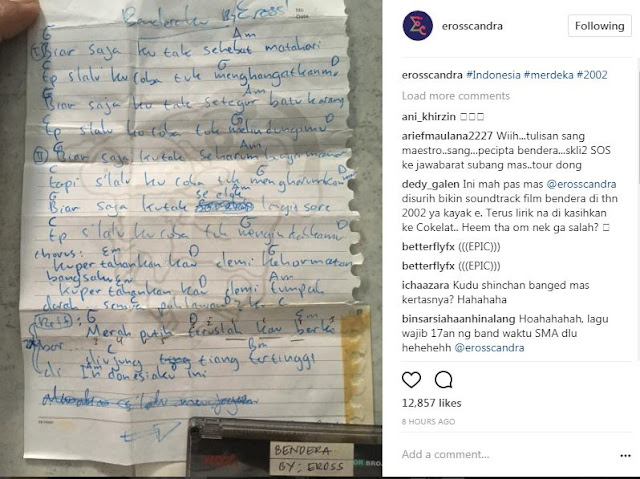 Benderaku By Eross!
No
Date
G Am
I Biar saja ku tak sehebat matahari
C G D
tp s'lalu ku coba tuk menghangatkanmu
G Am
Biar saja ku tak setegar batu karang
C G D
tp s'lalu ku coba tuk melindungimu
G Am
II Biar saja kutak seharum
C G D
tapi s'lalu ku coba tuk mengharumkan
G se elok Am
Biar saja kutak langit sore
C G D
tp s'lalu ku coba tuk mengindahkanmu
chorus: Em D C
kupertahankan kau demi kehormatan
bangsaku Em D Am
kupertahankan kau demi tumpah
darah semua pahlawan2 ku C
Reff: G D Em
Merah putih teruslah kau berki
bar C Bm
di ujung tiang tertinggi
di Indonesiaku ini
BENDERA
BY: EROSS
erosscandra
Following
erosscandra #Indonesia #merdeka #2002
Load more comments
ani_khirzin
ariefmaulana2227 Wiih...tulisan sang
maestro..sang...pecipta bendera...skli2 SOS
ke jawabarat subang mas..tour dong
dedy_galen Ini mah pas mas @erosscandra
disurih bikin soundtrack film bendera di thn
2002 ya kayak e. Terus lirik na di kasihkan
ke Cokelat.. Heem tha om nek ga salah?
betterflyfx (((EPIC)))
betterflyfx (((EPIC)))
ichaazara Kudu shinchan banged mas
kertasnya? Hahahaha
binsarsiahaanhinalang Hoahahahah, lagu
wajib 17an ng band waktu SMA dlu
hehehehh @erosscandra
12,857 likes
8 HOURS AGO
Add a comment...